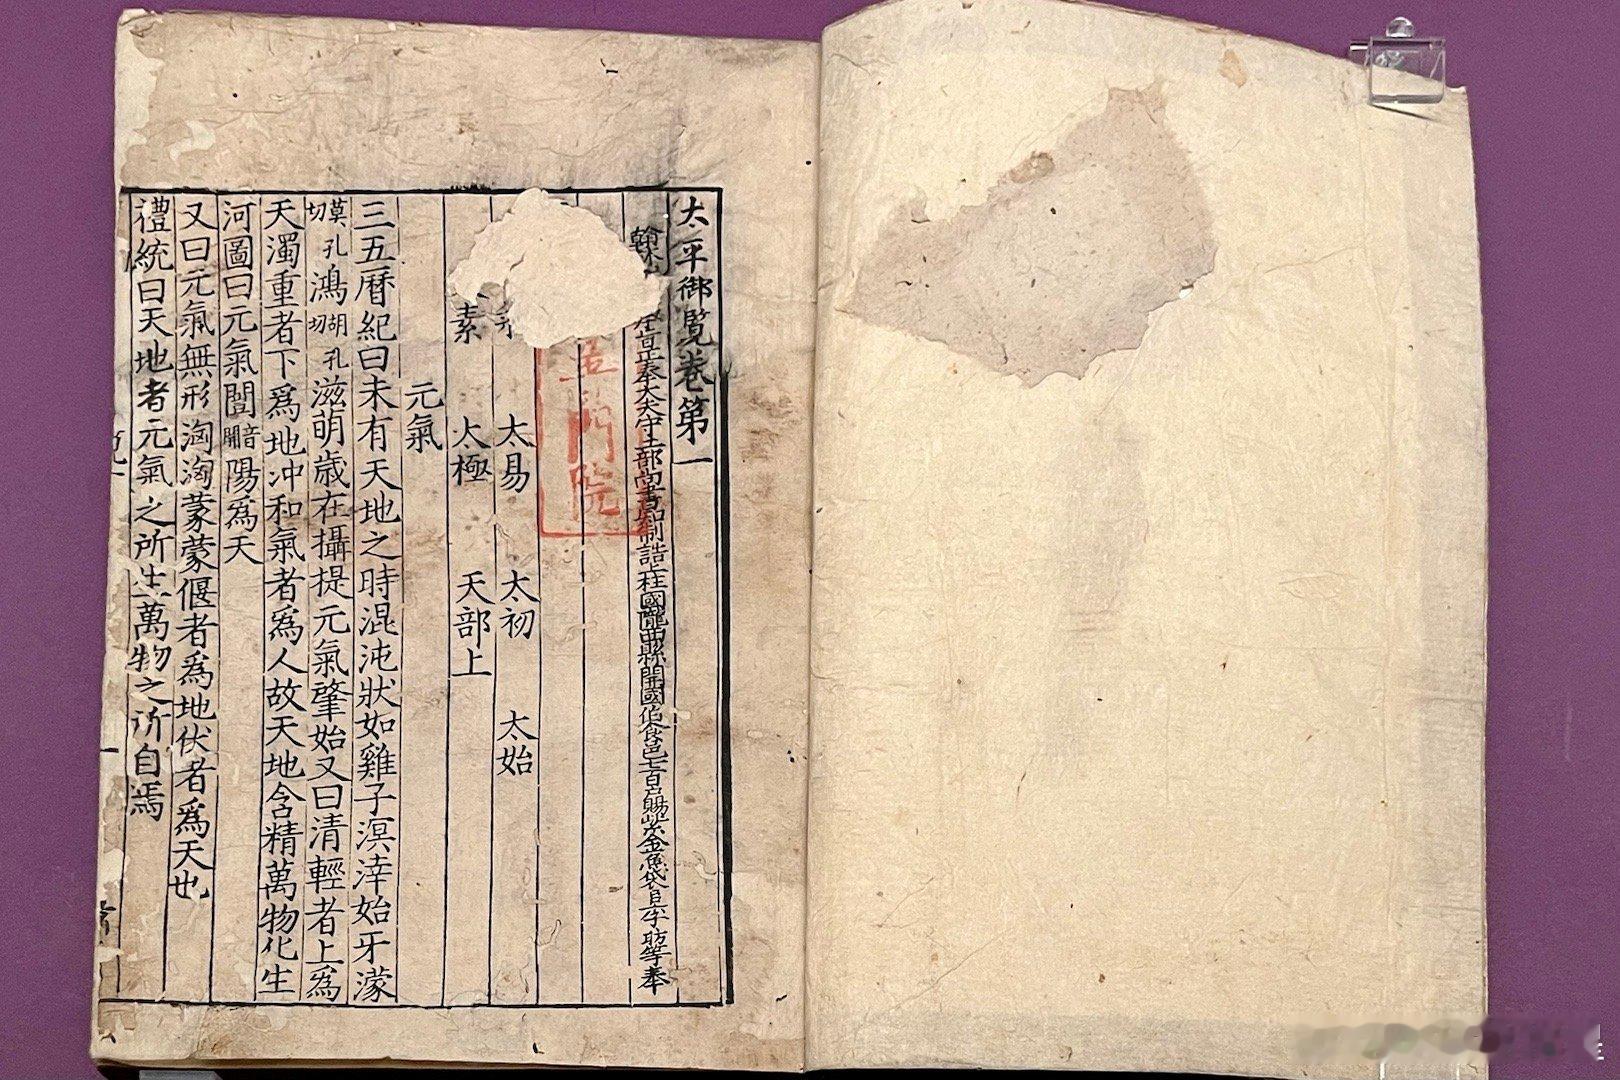 太平御覽卷第一
翰林 正奉大夫守工部尚書知制誥上柱國隴西縣開國伯食邑七百戶賜紫金魚袋臣李昉等奉
門院
太易 太初 太始
素 太極 天部上
元氣
三五曆紀曰未有天地之時混沌狀如雞子溟涬始牙濛
莫孔切鴻胡孔切滋萌歲在攝提元氣肇始又曰清輕者上爲
天濁重者下爲地冲和氣者爲人故天地含精萬物化生
河圖曰元氣闓音開陽爲天
又曰元氣無形洶洶蒙蒙偃者爲地伏者爲天也
禮統曰天地者元氣之所生萬物之所自焉